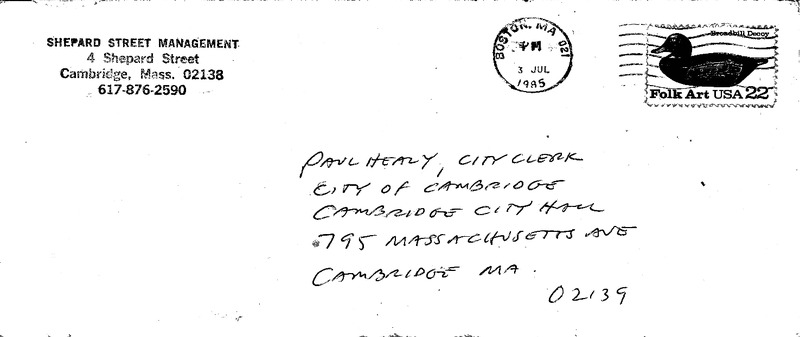 SHEPARD STREET MANAGEMENT
4 Shepard Street
Cambridge, Mass. 02138
617-876-2590
BOSTON, MA 021
PM
3 JUL
1985
Broadbill Decoy
Folk Art USA 22
PAUL HEALY, CITY CLERK
CITY OF CAMBRIDGE
CAMBRIDGE CITY HALL
795 MASSACHUSETTS AVE
CAMBRIDGE MA.
02139